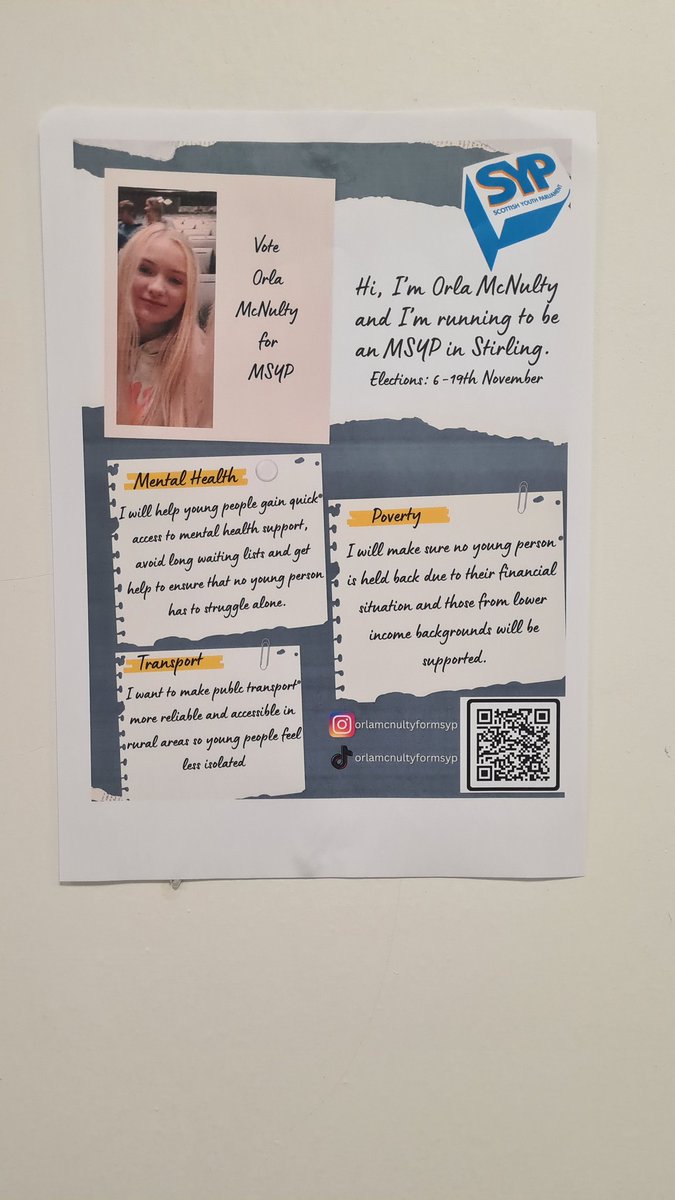 Vote
Orla
McNulty
for
MSYP
SYP
SCOTTISH YOUTH PARLIAMENT
Hi, I'm Orla McNulty
and I'm running to be
an MSYP in Stirling.
Elections: 6-19th November
Mental Health
I will help young people gain quick
access to mental health support,
avoid long waiting lists and get
help to ensure that no young person
has to struggle alone.
Poverty
I will make sure no young person
is held back due to their financial
situation and those from lower
income backgrounds will be
supported.
Transport
I want to make publc transport
more reliable and accessible in
rural areas so young people feel
less isolated
orlamcnultyformsyp
orlamcnultyformsyp